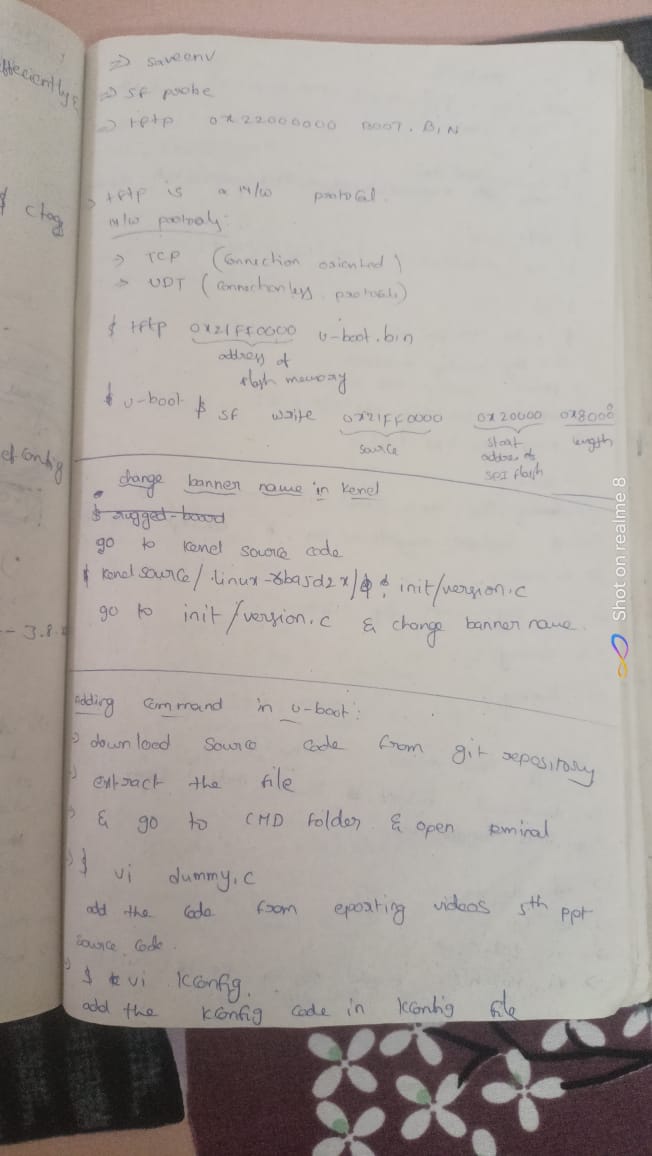 efficiently &
$ ctag
-- 3.8.
=> saveenv
=> sf probe
=> tftp 0x22000000 BOOT.BIN
=> tftp is a N/W protocal
N/W protocals:
-> TCP (Connection oriented)
-> UDT (Connectionless protocals)
$ tftp 0x21FF0000 u-boot.bin
address of
flash memory
$ u-boot $ sf write 0x21FF0000 0x20000 0x8000
source start length
addres of
spi flash
• change banner name in kernel
$ rugged-board
go to kernel source code
$ kernel source/ linux- / init/version.c
go to init/version.c & change banner name.
Adding Command in u-boot:
-> download source code from git repository
-> extract the file
-> & go to CMD Folder & open
-> $ vi dummy.c
add the code from eporting videos 5th ppt
source code.
-> $ vi Kconfig.
add the Kconfig code in Kconfig file
Shot on realme 8